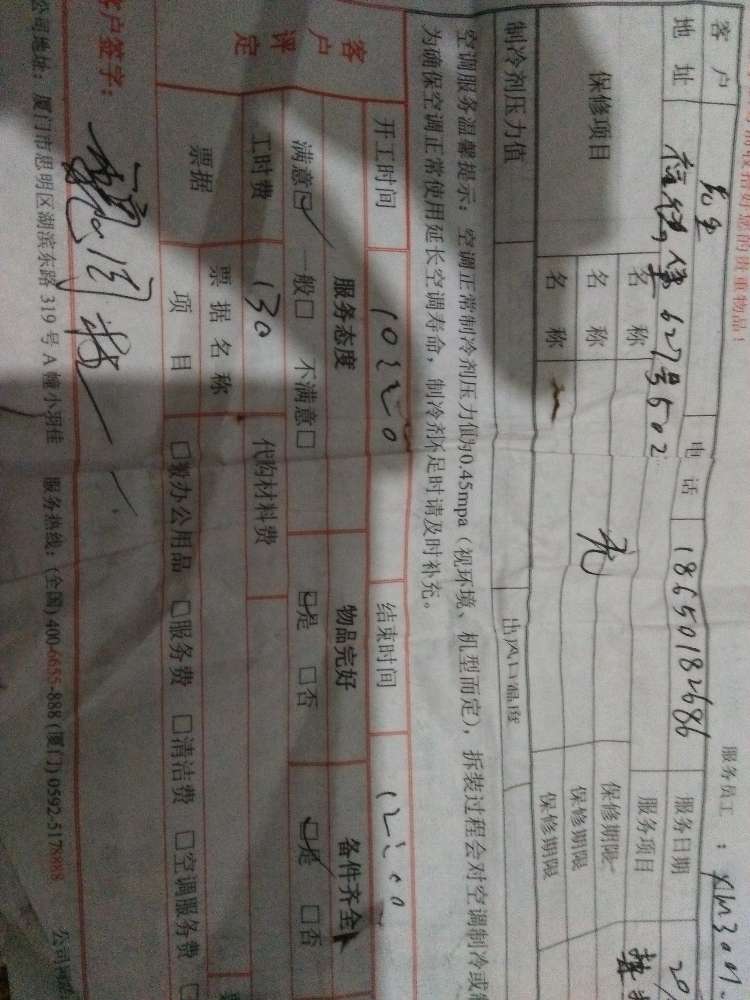 您的贵重物品！
服务员工：
客户
地址 627号502 电话 18650182686 服务日期
保修项目 名称 服务项目
名称 无 保修期限
名称 保修期限
保修期限
制冷剂压力值 出风口温度
空调服务温馨提示：空调正常制冷剂压力值为0.45mpa（视环境、机型而定），拆装过程会对空调制冷或制
为确保空调正常使用延长空调寿命，制冷剂不足时请及时补充。
开工时间 10:20 结束时间 12:00
客户评定 服务态度 物品完好 备件齐全
满意☑ 一般□ 不满意□ ☑是 □否 ☑是 □否
工时费 130 代购材料费
票据 票据名称
项目 □兼办公用品 □服务费 □清洁费 □空调服务费 □
客户签字：
公司地址：厦门市思明区湖滨东路 319号A幢小羽佳 服务热线：(全国) 400-6655-888 (厦门) 0592-5178888 公司网